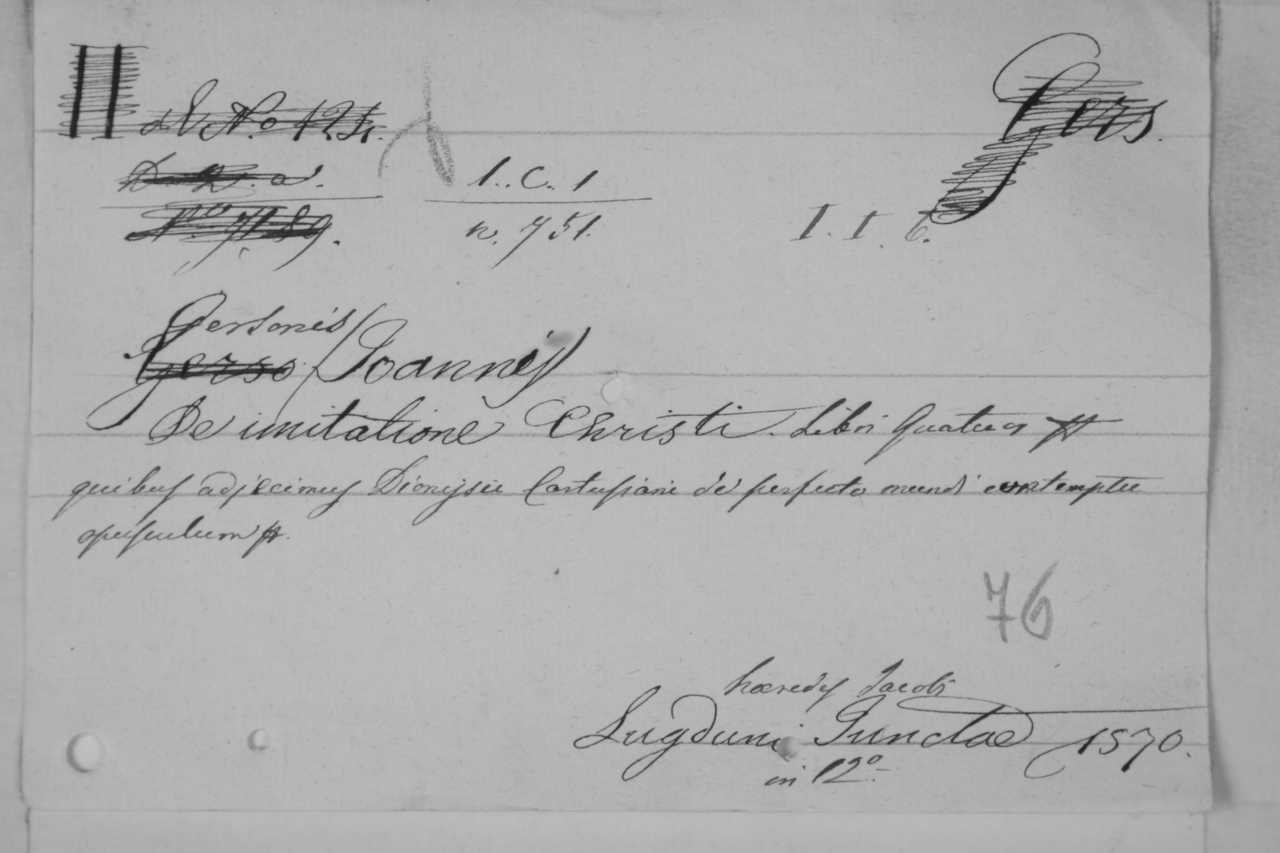 II
N.o 124.
Gers.
D. a.
1..C..1
No 7189.
n. 751.
I. I. 6.
Gersonis
Gerso (Joannes)
De imitatione Christi. Libri Quatuor
quibus adjecimus Dionijsii Cartusiani de perfecto mundi contemptu
opusculum
76
hæredes Jacobi
Lugduni Junctae 1570.
in 12o